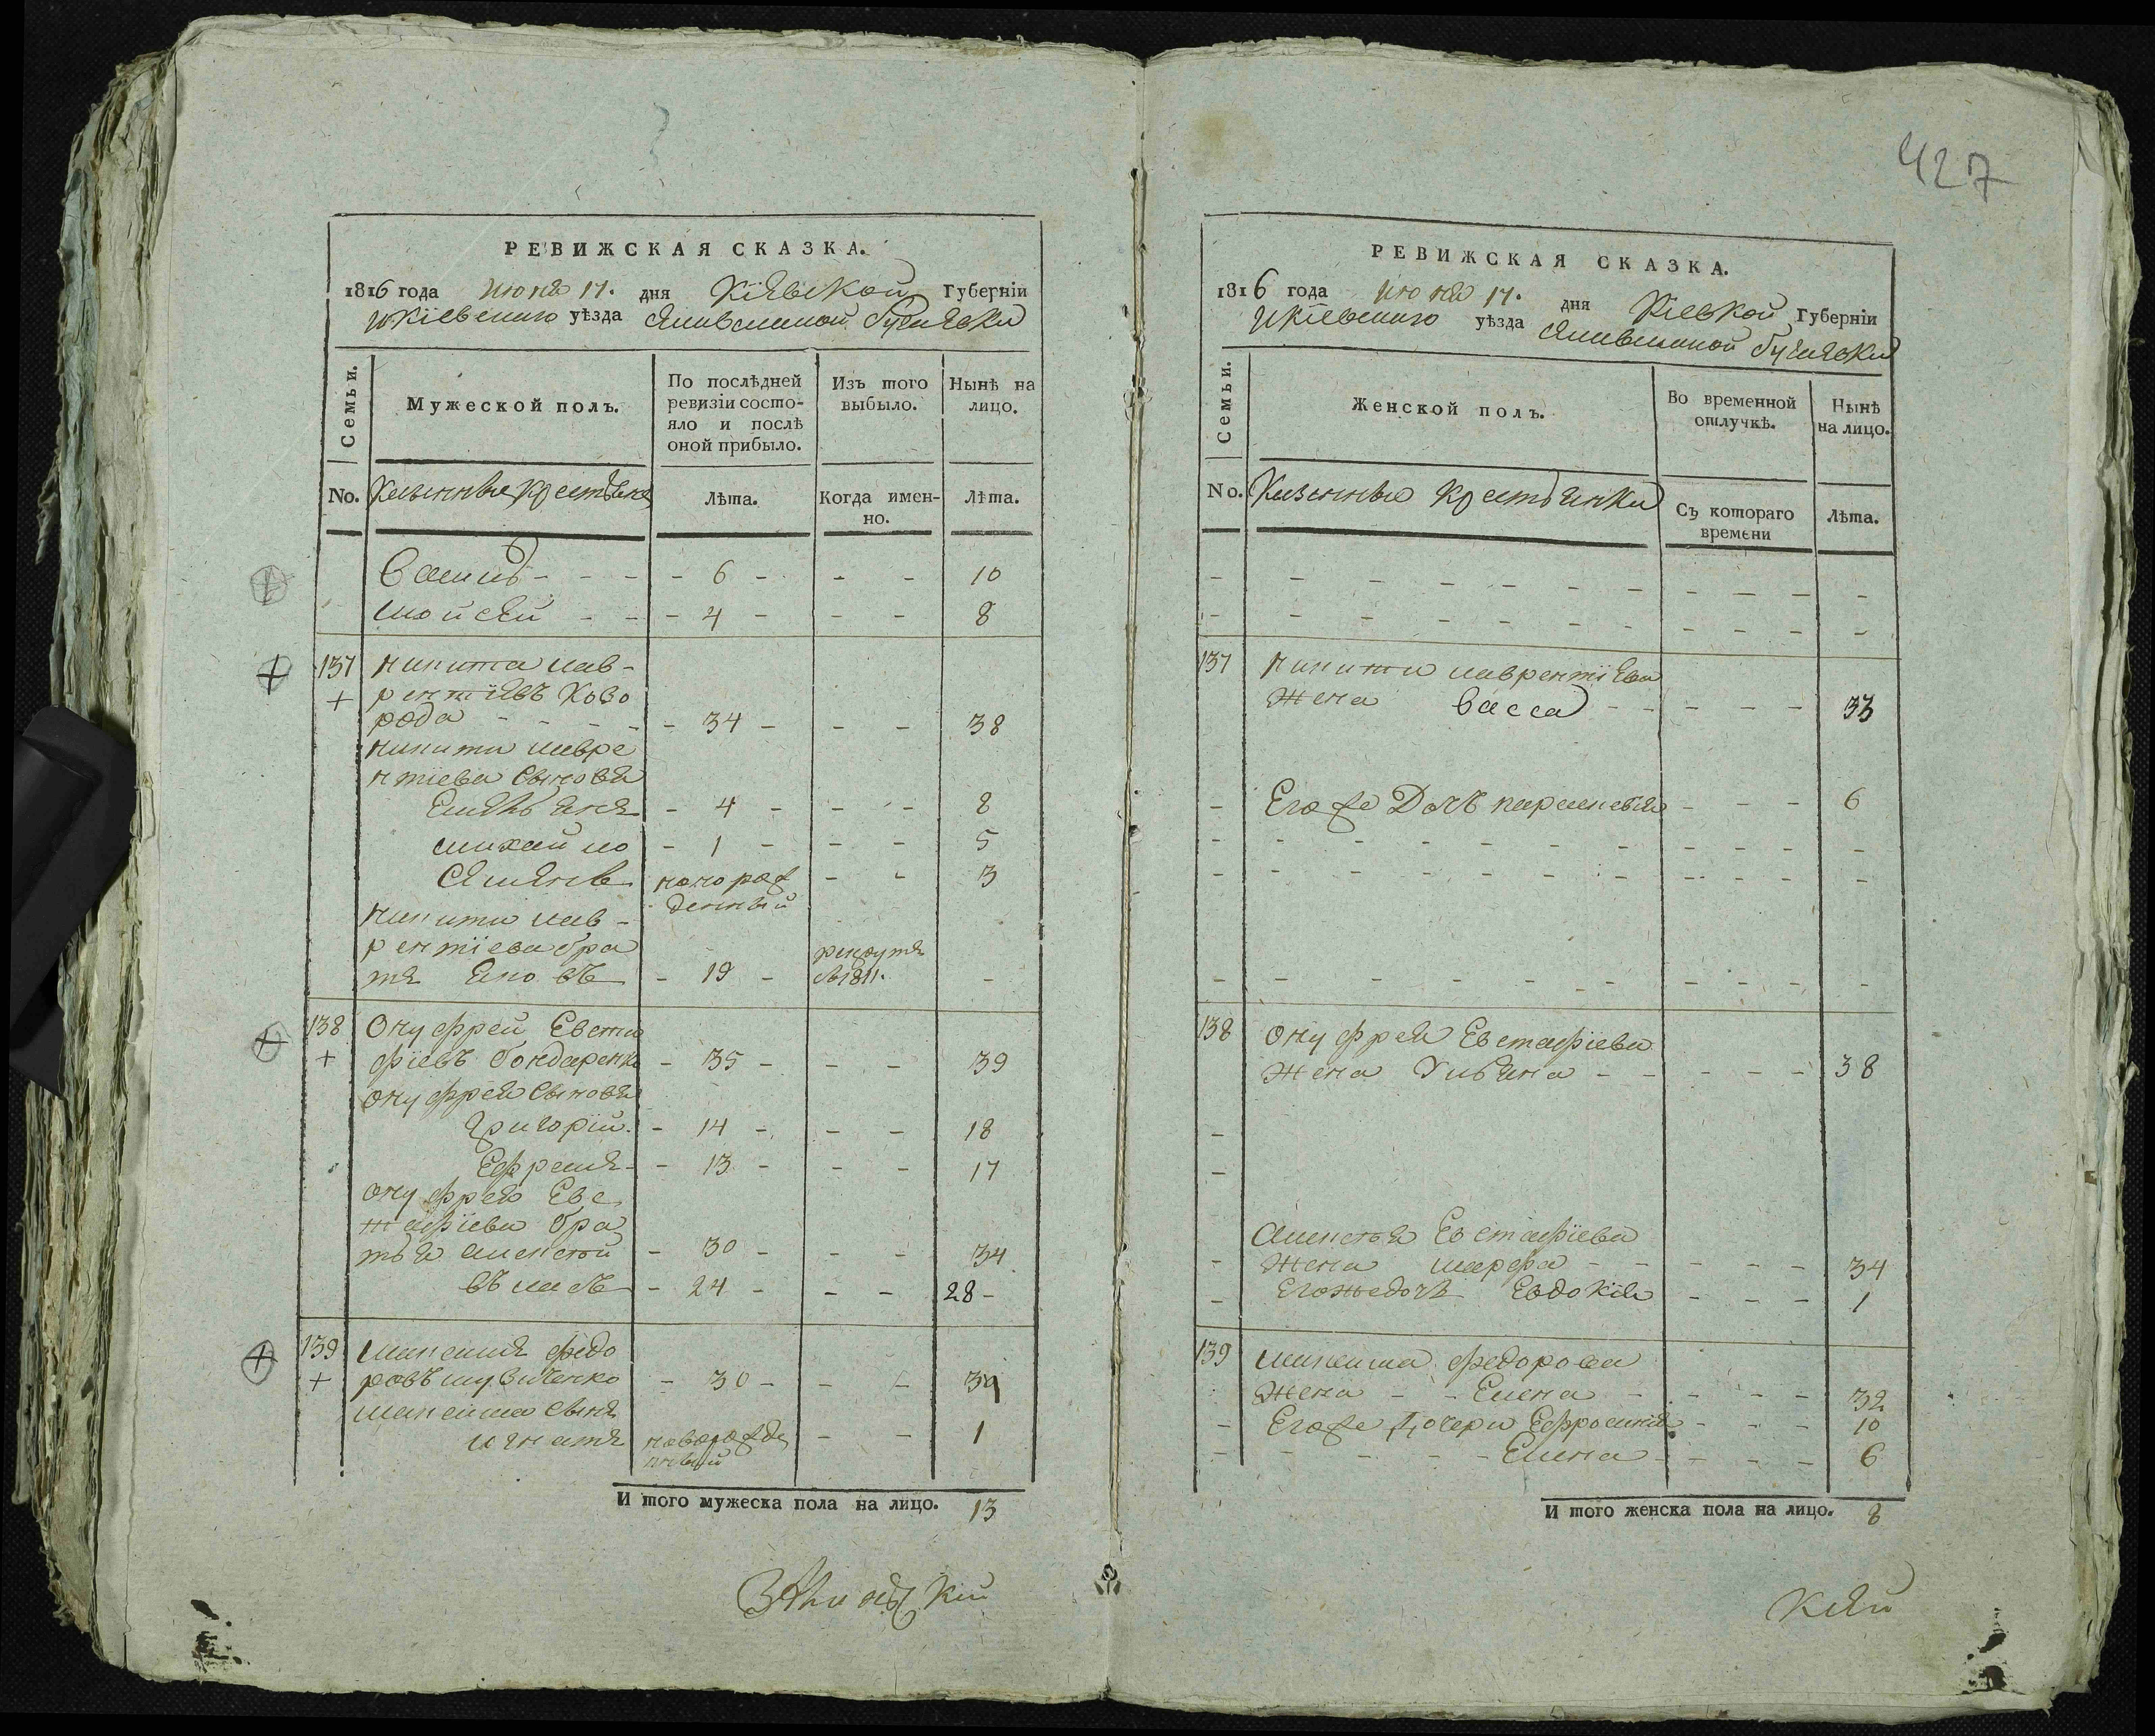 427
РЕВИЖСКАЯ СКАЗКА.
1816 года июня 17. дня Кіевской Губерніи
уѣзда
Семьи.
Мужеской полъ.
По послѣдней ревизіи состояло и послѣ оной прибыло.
Изъ того выбыло.
Нынѣ на лицо.
No.
Казенные крестьяне
Лѣта.
Когда именно.
Лѣта.
Василь - - - - 6 - - - 10
Мойсей - - - 4 - - - 8
137 Никита Лав-
+ рентіевъ Ково
рода - - - - - 34 - - - 38
Никиты Лавре
нтіева сыновя
Емельянъ - 4 - - - 8
Михайло - 1 - - - 5
Семенъ новорож - - 3
денный
Никиты Лав-
рентіева бра
тъ Яковъ - 19 - рекрутъ въ 1811. -
138 Онуфрей Евста
+ фіевъ Бондаренко - 35 - - - 39
Онуфрея сыновя
Григорій - 14 - - - 18
Ефремъ - - 13 - - - 17
Онуфрея Евс
тафіева бра
тья Алексей - 30 - - - 34
Василь - 24 - - - 28 -
139 Максимъ Федо
+ ровъ - 30 - - - 34
Максима сынъ
Игнатъ новорожде - - 1
нный
И того мужеска пола на лицо. 13
РЕВИЖСКАЯ СКАЗКА.
1816 года июня 17. дня Кіевкой Губерніи
уѣзда
Семьи.
Женской полъ.
Во временной отлучкѣ.
Нынѣ на лицо.
No.
Казенные крестьянки
Съ котораго времени
Лѣта.
137 Никиты Лаврентіева
жена Васса - - - - - 33
- Егоже дочь Параскевія - - - 6
138 Онуфрея Евстафіева
жена Ульяна - - - - - 38
Алексея Евстафіева
- жена Марфа - - - - - 34
- Егоже дочь Евдокія - - - 1
139 Максима Федорова
жена - - Елена - - - - 32
- Егоже дочери Ефросинія - - - 10
- - - - - Елена - - - - 6
И того женска пола на лицо. 8
кей